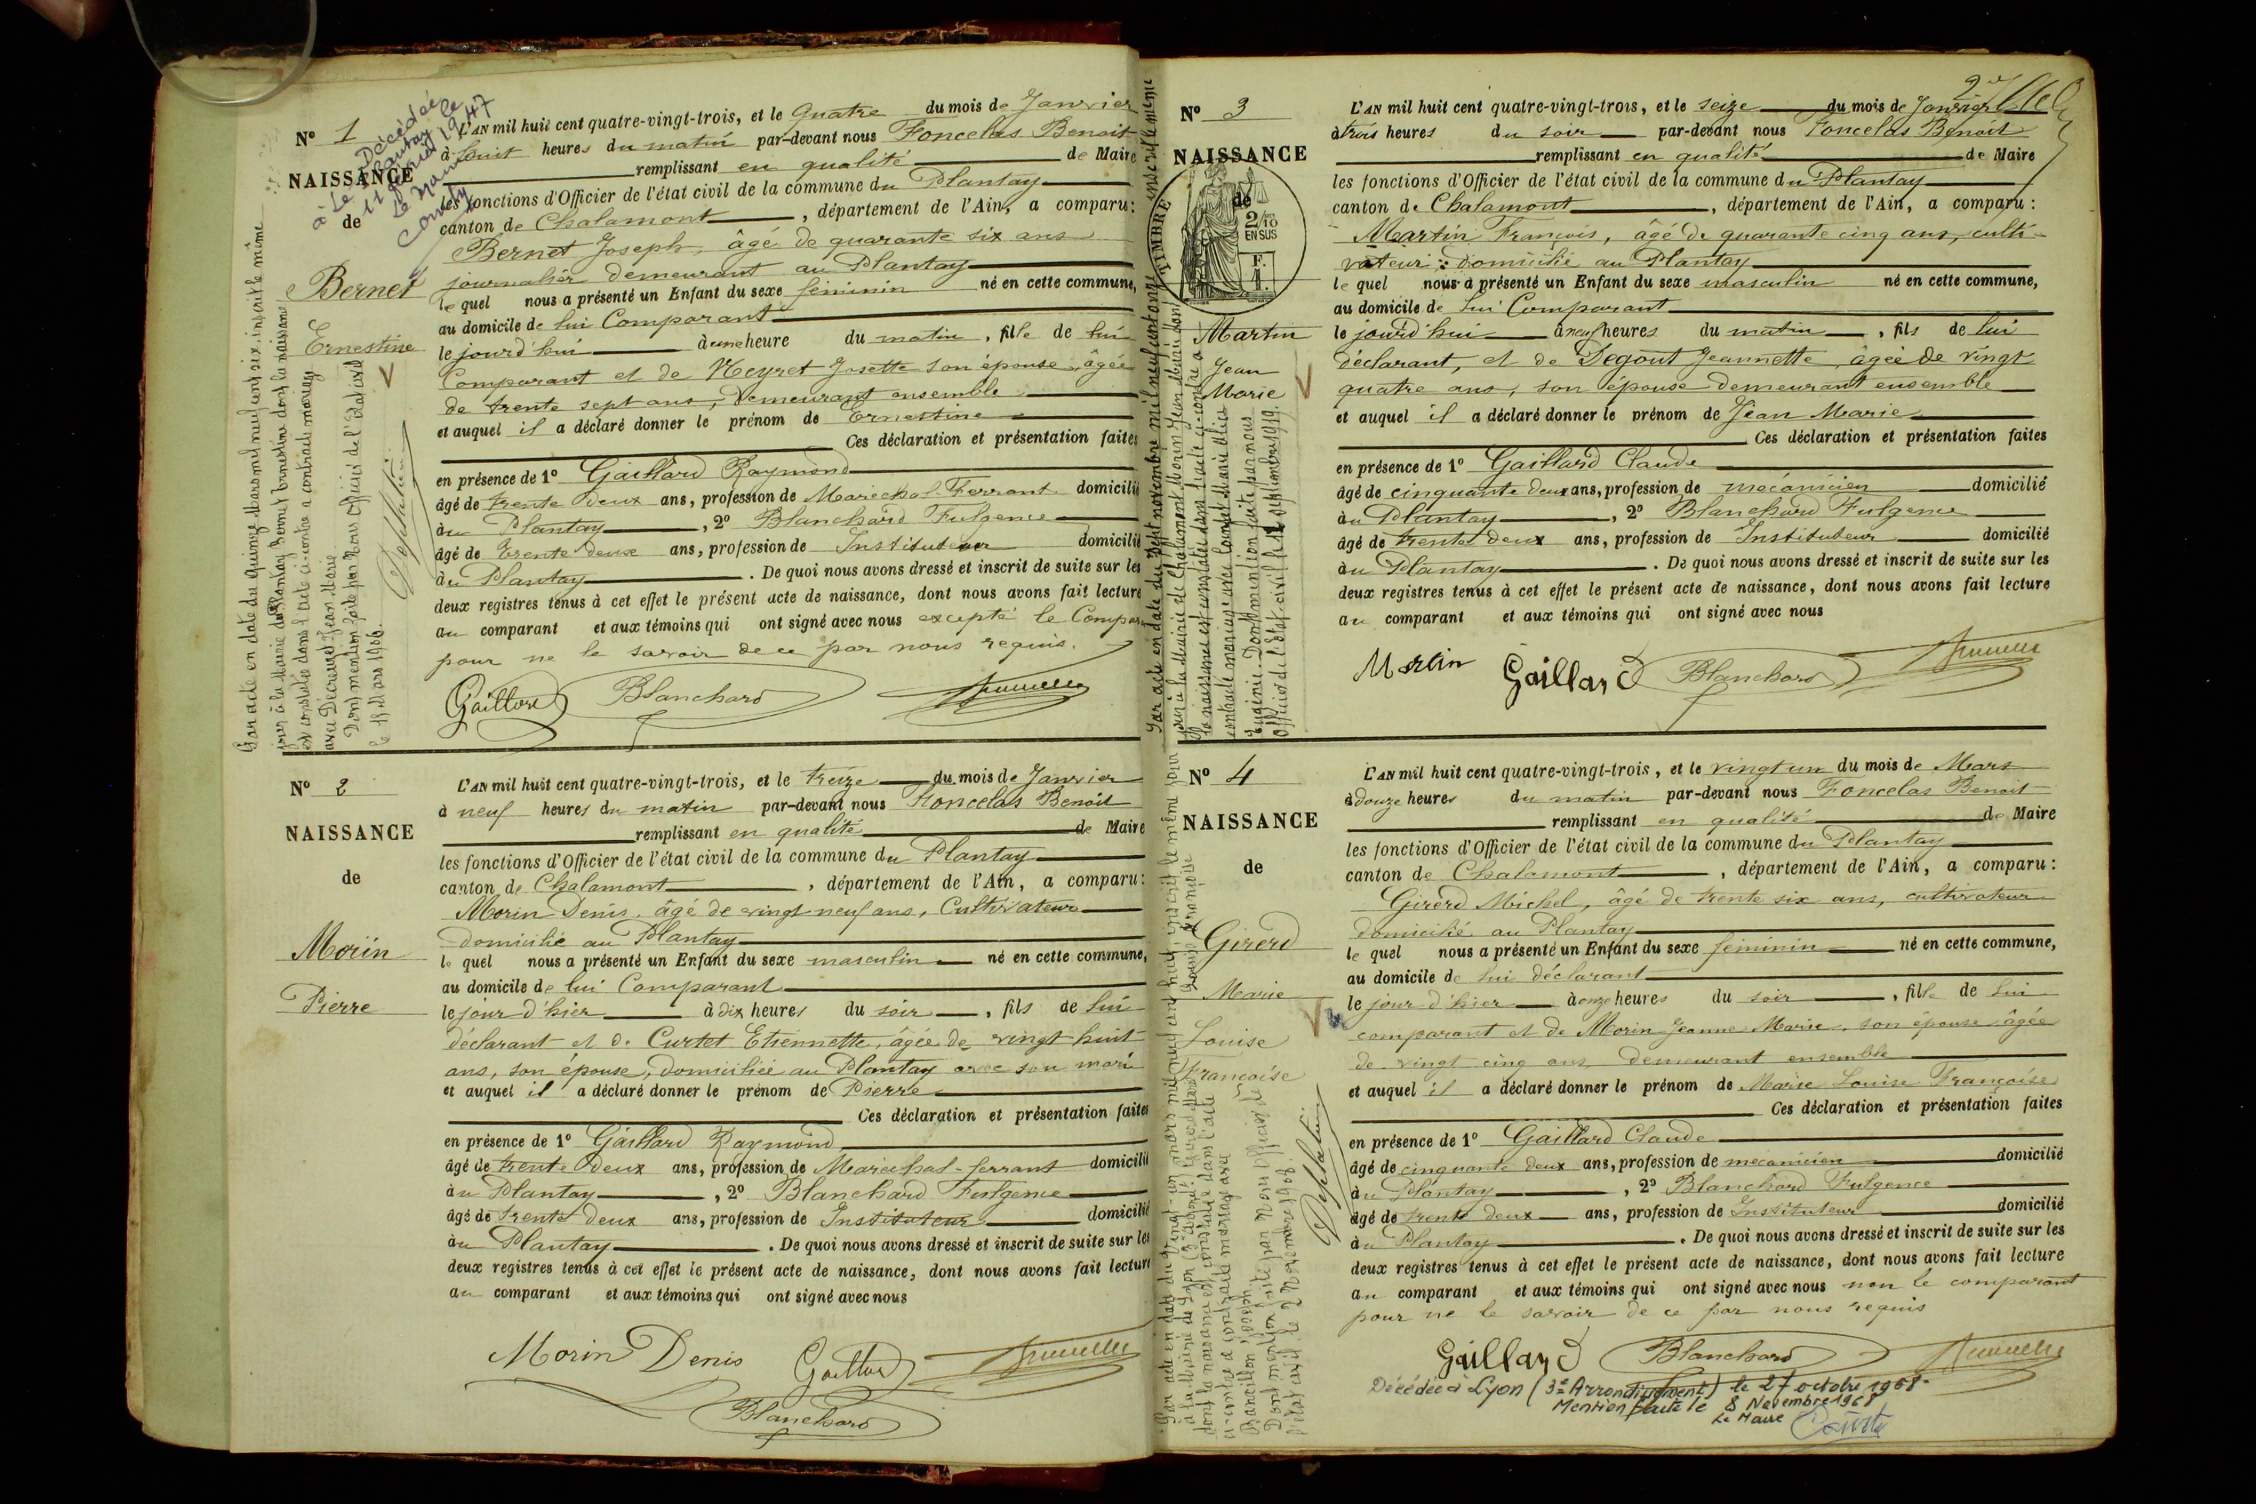 N° 1
NAISSANCE
de
Bernet
Ernestine
Décédée
à Le Plantay le
11 février 1947
Le Maire
L'AN mil huit cent quatre-vingt-trois, et le quatre du mois de Janvier
à huit heures du matin par-devant nous Foncelas Benoit
remplissant en qualité de Maire
les fonctions d'Officier de l'état civil de la commune du Plantay
canton de Chalamont, département de l'Ain, a comparu:
Bernet Joseph, âgé de quarante six ans
journalier demeurant au Plantay
le quel nous a présenté un Enfant du sexe féminin né en cette commune,
au domicile de lui Comparant
le jourd'hui à une heure du matin, fille de lui
Comparant et de Neyret Josette son épouse, âgée
de trente sept ans, demeurant ensemble
et auquel il a déclaré donner le prénom de Ernestine
Ces déclaration et présentation faites
en présence de 1° Gaillard Raymond
âgé de trente deux ans, profession de Maréchal-Ferrant domicilié
au Plantay, 2° Blanchard Fulgence
âgé de trente deux ans, profession de Instituteur domicilié
au Plantay. De quoi nous avons dressé et inscrit de suite sur les
deux registres tenus à cet effet le présent acte de naissance, dont nous avons fait lecture
au comparant et aux témoins qui ont signé avec nous excepté le Compar
pour ne le savoir de ce par nous requis.
Gaillard Blanchard
Par acte en date du quinze Mars mil neuf cent six, inscrit le même
jour à la Mairie du Plantay Bernet Ernestine dont la naissance
est constatée dans l'acte ci-contre a contracté mariage
avec Décruzet Jean Marie
Dont mention faite par Nous Officier de l'état civil
le 18 Mars 1906.
N° 2
NAISSANCE
de
Morin
Pierre
L'AN mil huit cent quatre-vingt-trois, et le treize du mois de Janvier
à neuf heures du matin par-devant nous Foncelas Benoit
remplissant en qualité de Maire
les fonctions d'Officier de l'état civil de la commune du Plantay
canton de Chalamont, département de l'Ain, a comparu:
Morin Denis, âgé de vingt neuf ans, Cultivateur
domicilié au Plantay
le quel nous a présenté un Enfant du sexe masculin né en cette commune,
au domicile de lui Comparant
le jour d'hier à dix heures du soir, fils de lui
déclarant et de Curtet Etiennette, âgée de vingt huit
ans, son épouse, domiciliée au Plantay avec son mari
et auquel il a déclaré donner le prénom de Pierre
Ces déclaration et présentation faites
en présence de 1° Gaillard Raymond
âgé de trente deux ans, profession de Maréchal-ferrant domicilié
au Plantay, 2° Blanchard Fulgence
âgé de trente deux ans, profession de Instituteur domicilié
au Plantay. De quoi nous avons dressé et inscrit de suite sur les
deux registres tenus à cet effet le présent acte de naissance, dont nous avons fait lecture
au comparant et aux témoins qui ont signé avec nous
Morin Denis Gaillard
Blanchard
N° 3
NAISSANCE
de
TIMBRE
2/10
EN SUS
Martin
Jean
Marie
L'AN mil huit cent quatre-vingt-trois, et le seize du mois de Janvier
à trois heures du soir par-devant nous Foncelas Benoit
remplissant en qualité de Maire
les fonctions d'Officier de l'état civil de la commune du Plantay
canton de Chalamont, département de l'Ain, a comparu:
Martin François, âgé de quarante cinq ans, culti-
vateur, domicilié au Plantay
le quel nous a présenté un Enfant du sexe masculin né en cette commune,
au domicile de lui Comparant
le jourd'hui à neuf heures du matin, fils de lui
déclarant, et de Degout Jeannette, âgée de vingt
quatre ans, son épouse demeurant ensemble
et auquel il a déclaré donner le prénom de Jean Marie
Ces déclaration et présentation faites
en présence de 1° Gaillard Claude
âgé de cinquante deux ans, profession de mécanicien domicilié
au Plantay, 2° Blanchard Fulgence
âgé de trente deux ans, profession de Instituteur domicilié
au Plantay. De quoi nous avons dressé et inscrit de suite sur les
deux registres tenus à cet effet le présent acte de naissance, dont nous avons fait lecture
au comparant et aux témoins qui ont signé avec nous
Martin Gaillard Blanchard
Par acte en date du sept novembre mil neuf cent onze inscrit le même
jour à la Mairie de Chalamont
la naissance est constatée dans l'acte ci-contre a
contracté mariage avec
Eugénie. Dont mention faite par nous
Officier de l'état civil le 12 septembre 1919.
N° 4
NAISSANCE
de
Girerd
Marie
Louise
Françoise
L'AN mil huit cent quatre-vingt-trois, et le vingt un du mois de Mars
à douze heures du matin par-devant nous Foncelas Benoit
remplissant en qualité de Maire
les fonctions d'Officier de l'état civil de la commune du Plantay
canton de Chalamont, département de l'Ain, a comparu:
Girerd Michel, âgé de trente six ans, cultivateur
domicilié au Plantay
le quel nous a présenté un Enfant du sexe féminin né en cette commune,
au domicile de lui déclarant
le jour d'hier à onze heures du soir, fille de lui
comparant et de Morin Jeanne Marie, son épouse, âgée
de vingt cinq ans, demeurant ensemble
et auquel il a déclaré donner le prénom de Marie Louise Françoise
Ces déclaration et présentation faites
en présence de 1° Gaillard Claude
âgé de cinquante deux ans, profession de mécanicien domicilié
au Plantay, 2° Blanchard Fulgence
âgé de trente deux ans, profession de Instituteur domicilié
au Plantay. De quoi nous avons dressé et inscrit de suite sur les
deux registres tenus à cet effet le présent acte de naissance, dont nous avons fait lecture
au comparant et aux témoins qui ont signé avec nous non le comparant
pour ne le savoir de ce par nous requis
Gaillard Blanchard
Décédée à Lyon (3e Arrondissement) le 27 octobre 1968
Mention faite le 8 Novembre 1968
Le Maire
Par acte en date du vingt-un mars mil neuf cent huit, inscrit le même jour
à la Mairie de Lyon Girerd Marie Louise Françoise
dont la naissance est constatée dans l'acte
ci-contre a contracté mariage avec
Joseph
Dont mention faite par Nous Officier de
l'état civil le 2 Novembre 1908.